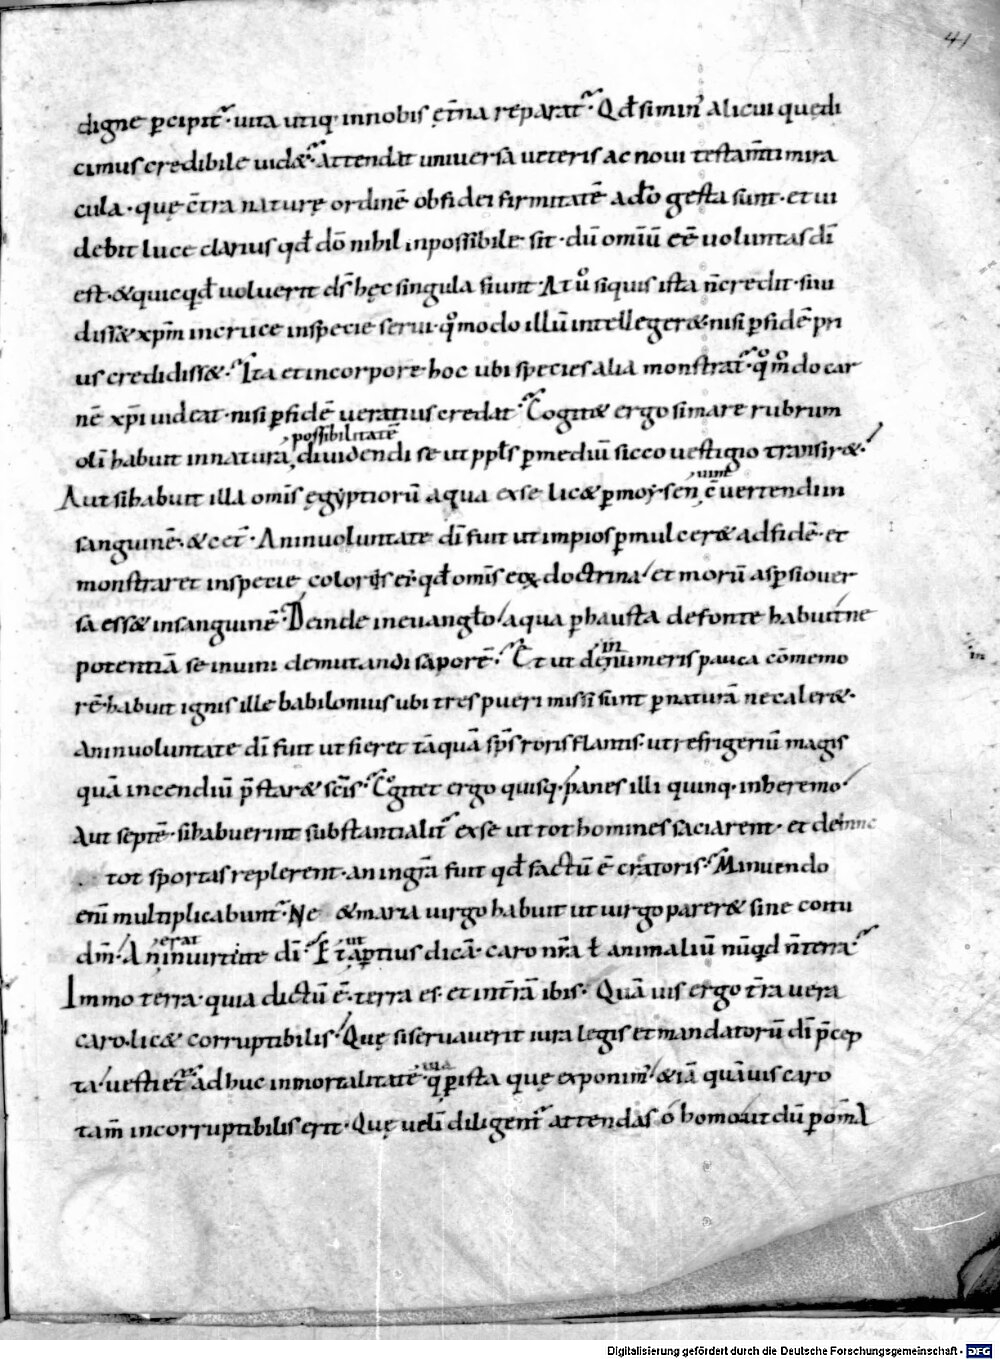 41
digne ꝑcipit᷑· uita utiq· innobis ęt̄na reparat᷑· Qd̄ simin᷑ alicui quędi
cimus credibile uidet᷑· attendat uniuersa ueteris ac noui testam̄ti mira
cula· quę c̄tra naturę ordinē ob fidei firmitatē ad̄o gesta sunt· et ui
debit luce clarius qd̄ dō nihil inpossibile sit· dū omiū eē uoluntas dī
est· &quicqd̄ uoluerit ds̄ hęc singula fiunt· At uͦ siquis ista n̄credit· si ui
diss& xp̄m incruce inspecie serui· qͦmodo illū intelleger& nisi ꝑfidē pri
us credidiss&· Ita et incorpore hoc ubi species alia monstrat᷑· qͦmͦdo car
nē xp̄i uideat· nisi ꝑfidē ueratius credat· Cogit& ergo si mare rubrum
possibilitatē
olī habuit innatura, diuidendi se ut ppl̄s ꝑmediū sicco uestigio transir&·
uim
Aut si habuit illa omīs ęgẏptiorū aqua exse lic& ꝑmoẏsen, ē uertendi in
sanguinē· & cet᷑· An inuoluntate dī fuit ut impios ꝑmulcer& adfidē· et
monstraret inspecie coloris ei· qd̄ omīs eoꝝ doctrina et morū aspsio uer
sa ess& insanguinē· Deinde ineuangl̄o aqua ꝑhausta defonte habuit ne
in
potentiā se inuini demutandi saporē· Et ut de numeris pauca cōmemo
rē· habuit ignis ille babilonius ubi tres pueri missi sunt ꝑnaturā necaler&·
An inuoluntate dī fuit ut fieret tāquā sp̄s roris flantis· ut refrigeriū magis
quā incendiū p̄star& scīs· Cogitet ergo quisq· panes illi quinq· inheremo
Aut septē· si habuerint substantialit᷑ exse ut tot homines saciarent· et deinne
tot sportas replerent· an ingr̄a fuit qd̄ factū ē creatoris· Minuendo
enī multiplicabunt᷑· Ne &maria uirgo habuit ut uirgo parer& sine coitu
erat ut
dm̄· An inuirtute dī· Et aptius dicā· caro nr̄a ł animaliū nūqd n̄terra
Immo terra· quia dictū ē· terra es· et int̄rā ibis· Quā uis ergo t̄ra uera
caro· lic& corruptibilis· Quę si seruauerit iura legis et mandatorū dī p̄cep
uia
ta· uestiet᷑ adhuc inmortalitatē· qꝑista quę exponim᷑· &iā quāuis caro
tam̄ incorruptibilis erit· Quę uelī diligent᷑ attendas ó homo ut dū
Digitalisierung gefördert durch die Deutsche Forschungsgemeinschaft - DFG